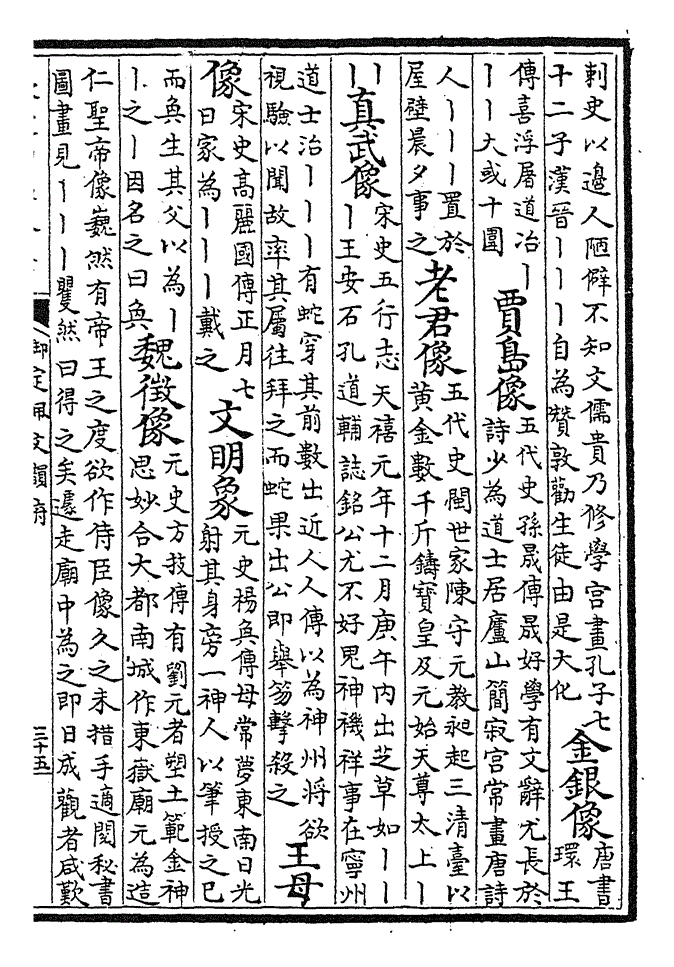 刺史以邊人陋僻不知文儒貴乃修學宮畫孔子七
十二子漢晉丨丨丨自為贊敦勸生徒由是大化
金銀像
唐書
環王
傳喜浮屠道冶丨
丨丨大或十圍
賈島像
五代史孫晟傳晟好學有文辭尤長於
詩少為道士居廬山簡寂宮常畫唐詩
人丨丨丨置於
屋壁晨夕事之
老君像
五代史閩世家陳守元教昶起三清臺以
黃金數千斤鑄寶皇及元始天尊太上丨
丨
丨
真武像
宋史五行志天禧元年十二月庚午内出芝草如丨丨
丨王安石孔道輔誌銘公尤不好鬼神禨祥事在寧州
道士治丨丨丨有蛇穿其前數出近人人傳以為神州將欲
視驗以聞故率其屬往拜之而蛇果出公即舉笏擊殺之
王母
像
宋史高麗國傳正月七
日家為丨丨丨戴之
文明象
元史楊奐傳母常夢東南日光
射其身旁一神人以筆授之已
而奐生其父以為丨
丨之丨因名之曰奐
魏徵像
元史方技傳有劉元者塑土範金神
思妙合大都南城作東嶽廟元為造
仁聖帝像巍然有帝王之度欲作侍臣像久之未措手適閱秘書
圖畫見丨丨丨矍然曰得之矣遽走廟中為之即日成觀者咸歎
御定佩文韻府
三十五